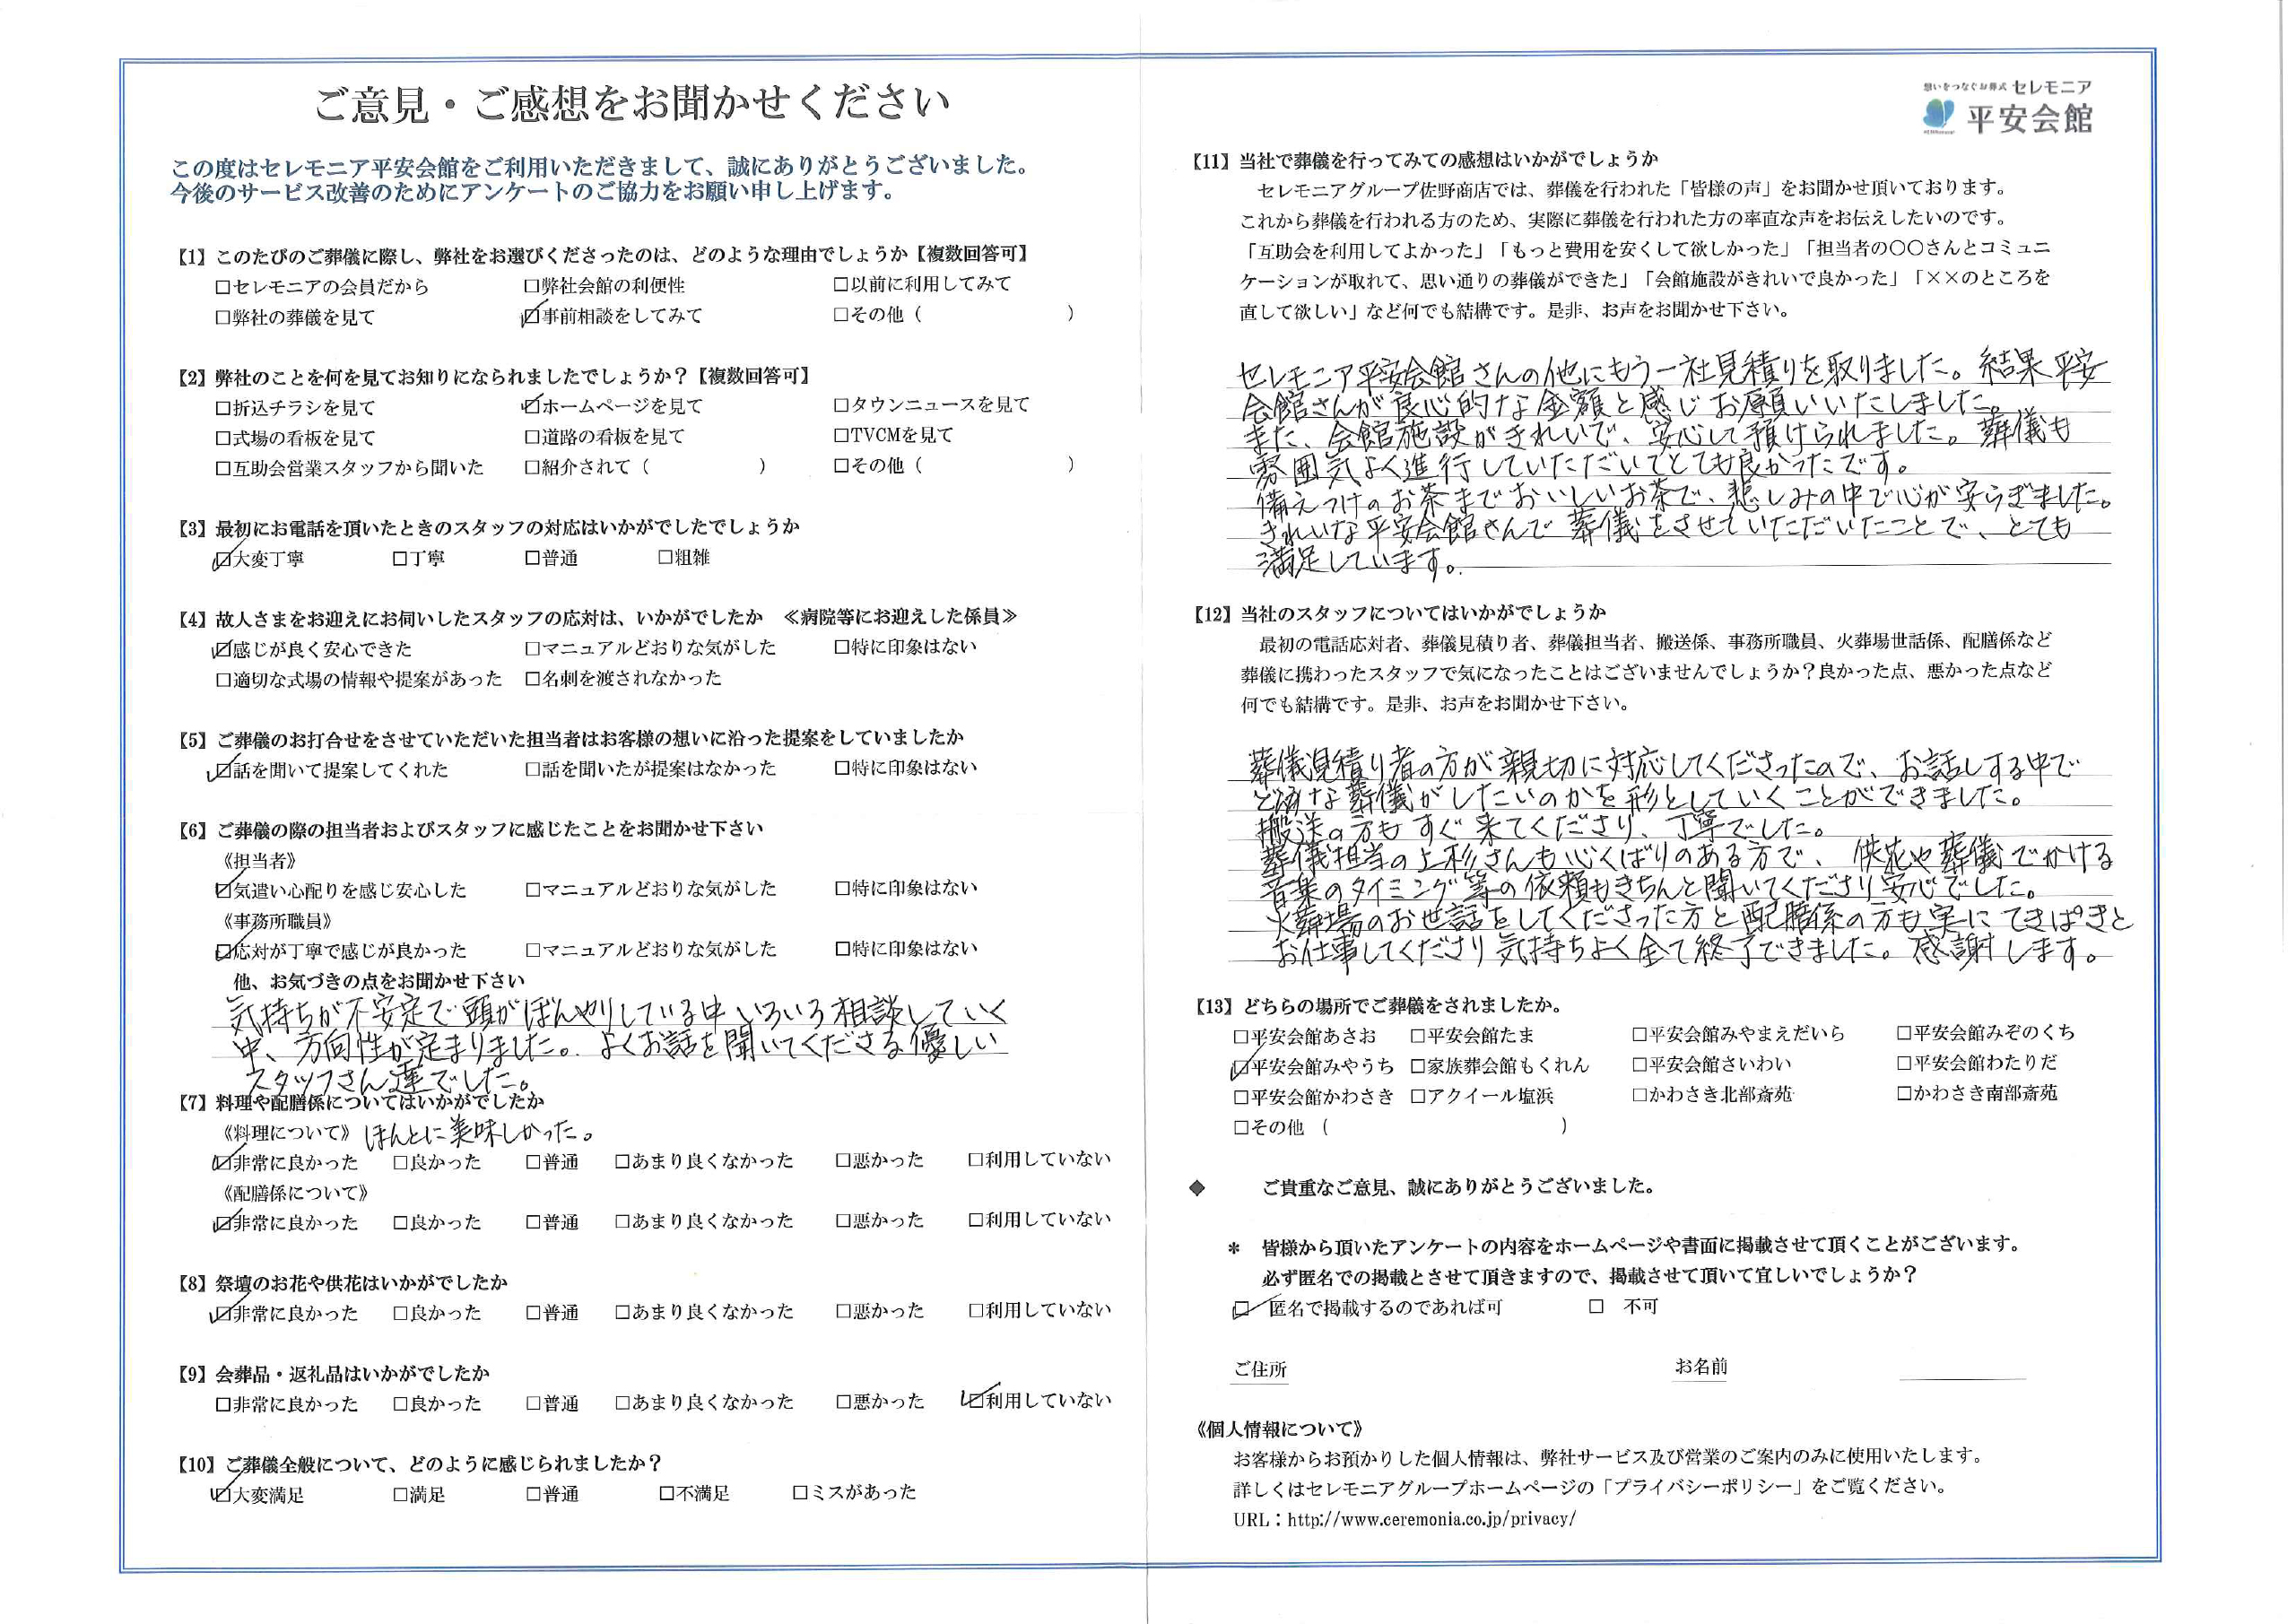 ご意見・ご感想をお聞かせください
この度はセレモニア平安会館をご利用いただきまして、誠にありがとうございました。
今後のサービス改善のためにアンケートのご協力をお願い申し上げます。
【1】このたびのご葬儀に際し、弊社をお選びくださったのは、どのような理由でしょうか【複数回答可】
□セレモニアの会員だから □弊社会館の利便性 □以前に利用してみて
□弊社の葬儀を見て ☑事前相談をしてみて □その他（　　　）
【2】弊社のことを何を見てお知りになられましたでしょうか？【複数回答可】
□折込チラシを見て ☑ホームページを見て □タウンニュースを見て
□式場の看板を見て □道路の看板を見て □TVCMを見て
□互助会営業スタッフから聞いた □紹介されて（　　　） □その他（　　　）
【3】最初にお電話を頂いたときのスタッフの対応はいかがでしたでしょうか
☑大変丁寧 □丁寧 □普通 □粗雑
【4】故人さまをお迎えにお伺いしたスタッフの応対は、いかがでしたか　≪病院等にお迎えした係員≫
☑感じが良く安心できた □マニュアルどおりな気がした □特に印象はない
□適切な式場の情報や提案があった □名刺を渡されなかった
【5】ご葬儀のお打合せをさせていただいた担当者はお客様の想いに沿った提案をしていましたか
☑話を聞いて提案してくれた □話を聞いたが提案はなかった □特に印象はない
【6】ご葬儀の際の担当者およびスタッフに感じたことをお聞かせ下さい
《担当者》
☑気遣い心配りを感じ安心した □マニュアルどおりな気がした □特に印象はない
《事務所職員》
☑応対が丁寧で感じが良かった □マニュアルどおりな気がした □特に印象はない
他、お気づきの点をお聞かせ下さい
気持ちが不安定で頭がぼんやりしている中いろいろ相談していく
中、方向性が定まりました。よくお話を聞いてくださる優しい
スタッフさん達でした。
【7】料理や配膳係についてはいかがでしたか
《料理について》ほんとに美味しかった。
☑非常に良かった □良かった □普通 □あまり良くなかった □悪かった □利用していない
《配膳係について》
☑非常に良かった □良かった □普通 □あまり良くなかった □悪かった □利用していない
【8】祭壇のお花や供花はいかがでしたか
☑非常に良かった □良かった □普通 □あまり良くなかった □悪かった □利用していない
【9】会葬品・返礼品はいかがでしたか
□非常に良かった □良かった □普通 □あまり良くなかった □悪かった ☑利用していない
【10】ご葬儀全般について、どのように感じられましたか？
☑大変満足 □満足 □普通 □不満足 □ミスがあった
想いをつなぐお葬式 セレモニア
平安会館
【11】当社で葬儀を行ってみての感想はいかがでしょうか
セレモニアグループ佐野商店では、葬儀を行われた「皆様の声」をお聞かせ頂いております。
これから葬儀を行われる方のため、実際に葬儀を行われた方の率直な声をお伝えしたいのです。
「互助会を利用してよかった」「もっと費用を安くして欲しかった」「担当者の〇〇さんとコミュニ
ケーションが取れて、思い通りの葬儀ができた」「会館施設がきれいで良かった」「××のところを
直して欲しい」など何でも結構です。是非、お声をお聞かせ下さい。
セレモニア平安会館さんの他にもう一社見積りを取りました。結果平安
会館さんが良心的な金額と感じお願いいたしました。
また、会館施設がきれいで、安心して預けられました。葬儀も
雰囲気よく進行していただいてとても良かったです。
備えつけのお茶までおいしいお茶で、悲しみの中で心が安らぎました。
きれいな平安会館さんで葬儀をさせていただいたことで、とても
満足しています。
【12】当社のスタッフについてはいかがでしょうか
最初の電話応対者、葬儀見積り者、葬儀担当者、搬送係、事務所職員、火葬場世話係、配膳係など
葬儀に携わったスタッフで気になったことはございませんでしょうか？良かった点、悪かった点など
何でも結構です。是非、お声をお聞かせ下さい。
葬儀見積り者の方が親切に対応してくださったので、お話しする中で
どんな葬儀がしたいのかを形としていくことができました。
搬送の方もすぐ来てくださり、丁寧でした。
葬儀担当の上杉さんも心くばりのある方で、供花や葬儀でかける
音楽のタイミング等の依頼もきちんと聞いてくださり安心でした。
火葬場のお世話をしてくださった方と配膳係の方も実にてきぱきと
お仕事してくださり気持ちよく全て終了できました。感謝します。
【13】どちらの場所でご葬儀をされましたか。
□平安会館あさお □平安会館たま □平安会館みやまえだいら □平安会館みぞのくち
☑平安会館みやうち □家族葬会館もくれん □平安会館さいわい □平安会館わたりだ
□平安会館かわさき □アクイール塩浜 □かわさき北部斎苑 □かわさき南部斎苑
□その他（　　　）
◆　ご貴重なご意見、誠にありがとうございました。
＊　皆様から頂いたアンケートの内容をホームページや書面に掲載させて頂くことがございます。
必ず匿名での掲載とさせて頂きますので、掲載させて頂いて宜しいでしょうか？
☑ 匿名で掲載するのであれば可 □ 不可
ご住所 お名前
《個人情報について》
お客様からお預かりした個人情報は、弊社サービス及び営業のご案内のみに使用いたします。
詳しくはセレモニアグループホームページの「プライバシーポリシー」をご覧ください。
URL：http://www.ceremonia.co.jp/privacy/